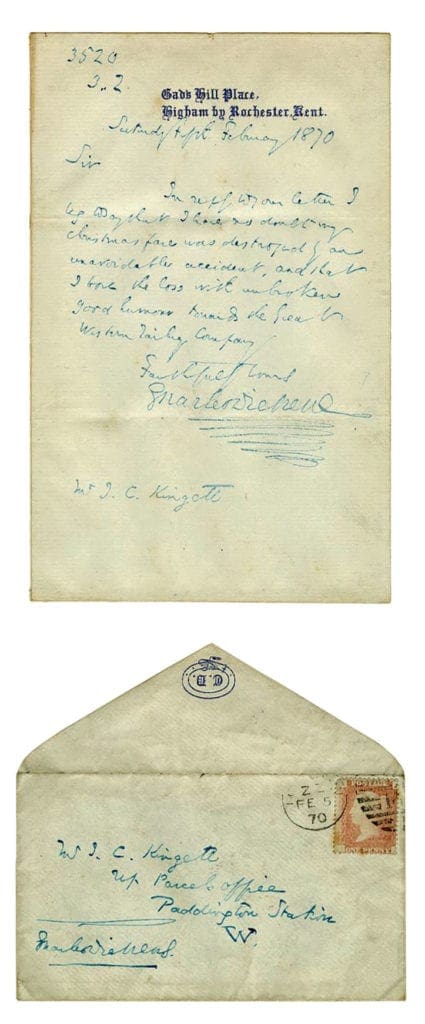 3520
Gad's Hill Place,
Higham by Rochester, Kent.
Saturday Fifth February 1870
Sir
In reply to your letter I
beg to say that I have no doubt my
Christmas fare was destroyed by an
unavoidable accident, and that
I bore the loss with unbroken
good humour towards the Great
Western Railway Company
Faithfully Yours
Charles Dickens
Mr J. C. Kingett
C.D.
FE 5
70
Mr J. C. Kingett
Up Parcels office
Paddington Station
W.
Charles Dickens.